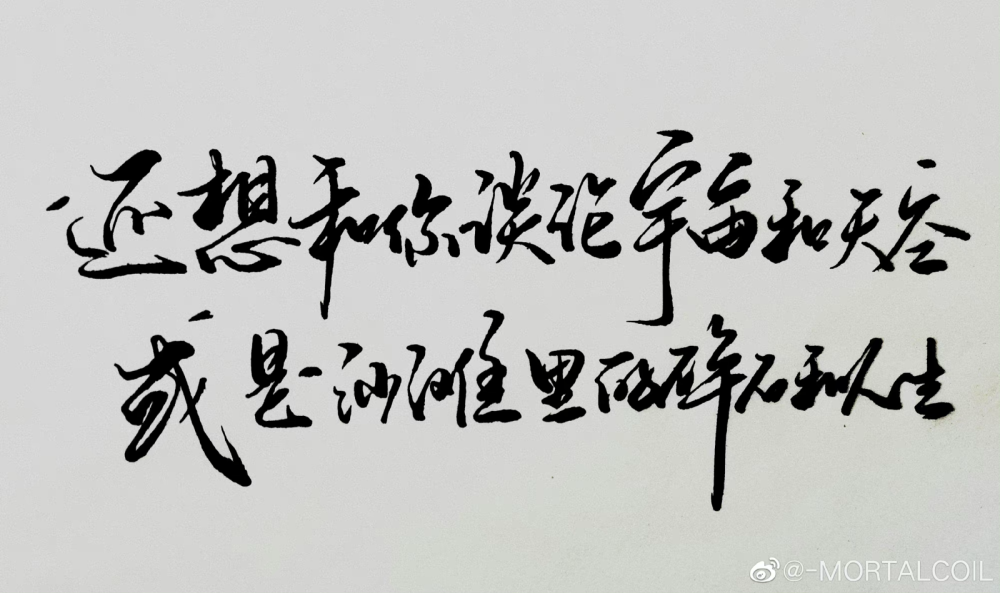 还想和你谈论宇宙和天空
或是沙滩里的碎石和人生
@-MORTALCOIL